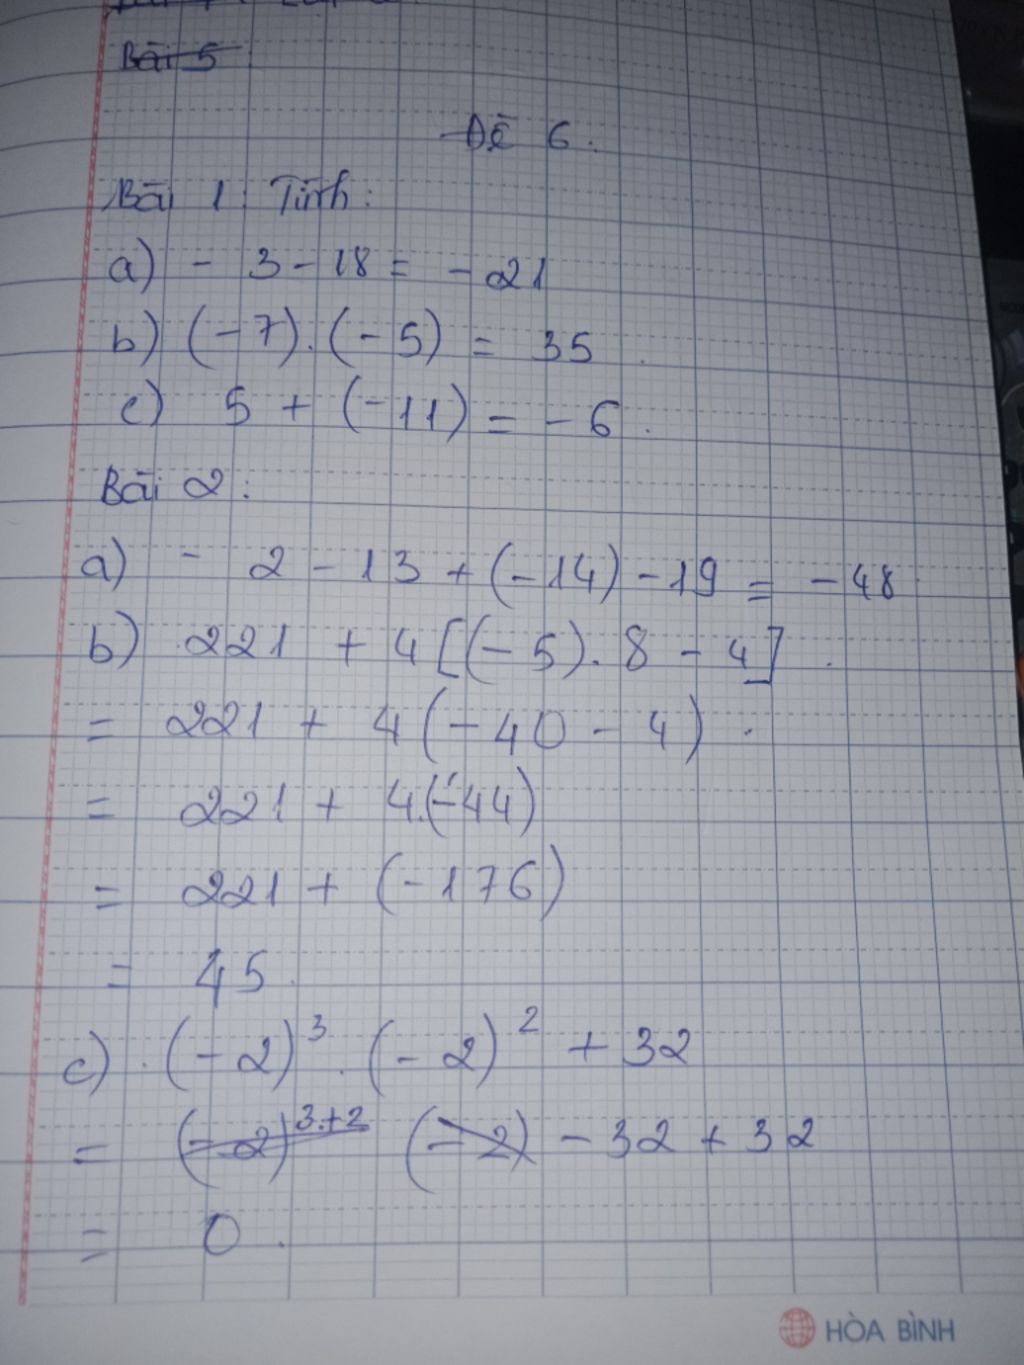 Bài 5
Đề 6.
Bài 1: Tính:
a) - 3 - 18 = - 21
b) (-7) . (-5) = 35
c) 5 + (-11) = - 6.
Bài 2:
a) - 2 - 13 + (-14) - 19 = - 48
b) 221 + 4 [(-5). 8 - 4]
= 221 + 4 (- 40 - 4)
= 221 + 4.(-44)
= 221 + (-176)
= 45
c) (-2)³ . (-2)² + 32
= (-2)³⁺² (-2) - 32 + 32
= 0.
HÒA BÌNH